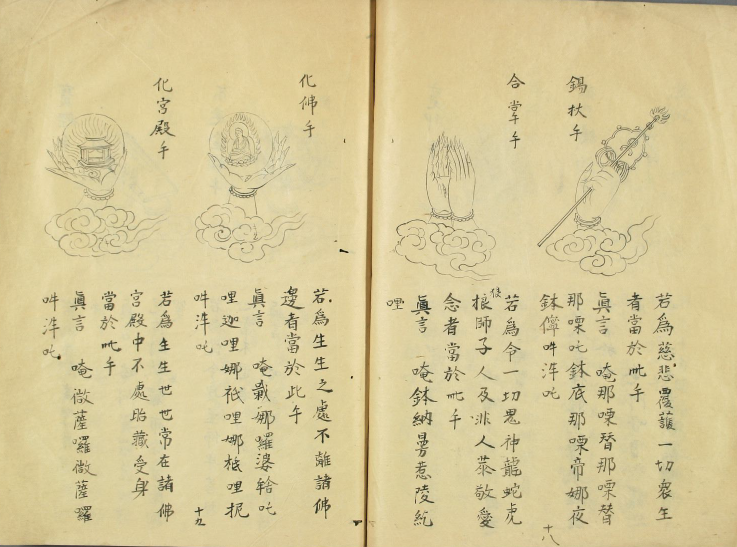 錫杖手
若為慈悲覆護一切衆生
者當於此手
眞言 唵那㗚替那㗚替
那㗚吒鉢底那㗚帝娜夜
鉢儜吽泮吒
合掌手
若為令一切鬼神龍蛇虎
狼師子人及非人恭敬愛
念者當於此手
眞言 唵鉢納曼惹陵紇
哩
十八
化佛手
若為生生之處不離諸佛
邊者當於此手
眞言 唵戰娜囉婆𤚥吒
哩迦哩娜祇哩娜祇哩柅
吽泮吒
化宮殿手
若為生生世世常在諸佛
宮殿中不處胎藏受身
當於此手
眞言 唵微薩囉微薩囉
吽泮吒
十九